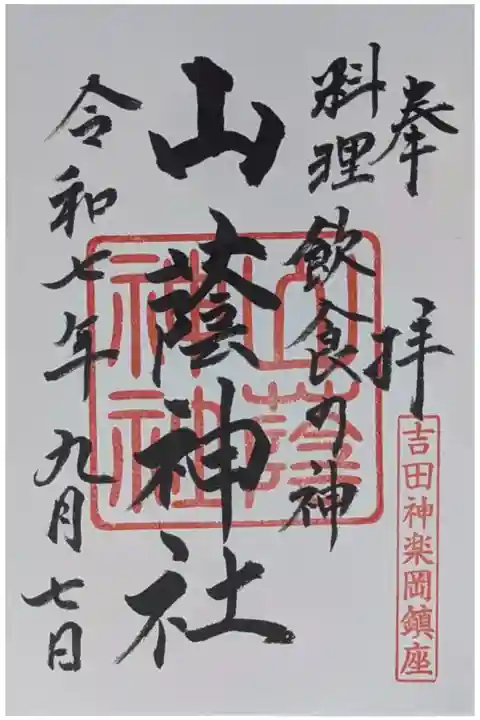 奉拝
吉田神楽岡鎮座
料理飲食の神
山蔭神社
山蔭神社
令和七年九月七日